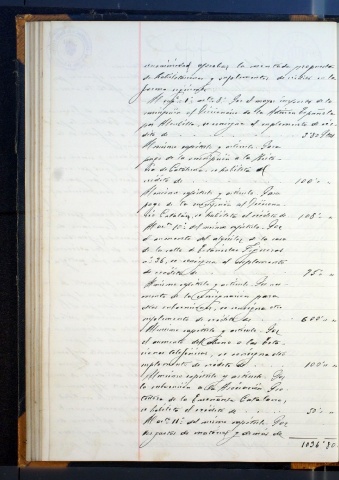 unanimidad, aprobar la
de habilitaciones y suplementos de crédito en la
forma siguiente:
Al cap. 1º artº 3º Por el mayor importe de la
suscripción al Diccionario de la
por Alcubilla, se consigna el suplemento de cré-
dito de 3'80 Ptas
Al mismo capítulo y artículo. Para
pago de la suscripción a la
de Catalunya, se habilita el
crédito de 100'- "
Al mismo capítulo y artículo. Para
pago de la suscripción al Diccio-
nari Català, se habilita el crédito de 105'- "
Al del mismo capítulo. Por
el aumento del alquiler de la casa
de la calle de Estanislao Figueras
nº 36, se consigna el suplemento
de crédito de 75'- "
Al mismo capítulo y artículo. Por au-
mento de la consignación para
se consigna el
suplemento de crédito de 600'- "
Al mismo capítulo y artículo. Por
el aumento del abono a las Esta-
ciones telefónicas, se consigna el
suplemento de crédito de 100'- "
Al mismo capítulo y artículo. Por
la subvención a la Asociación Pro-
tectora de la Enseñanza Catalana,
se habilita el crédito de 50'- "
Al artº 11º del mismo capítulo. Por
los gastos de material y demás de
1034'80